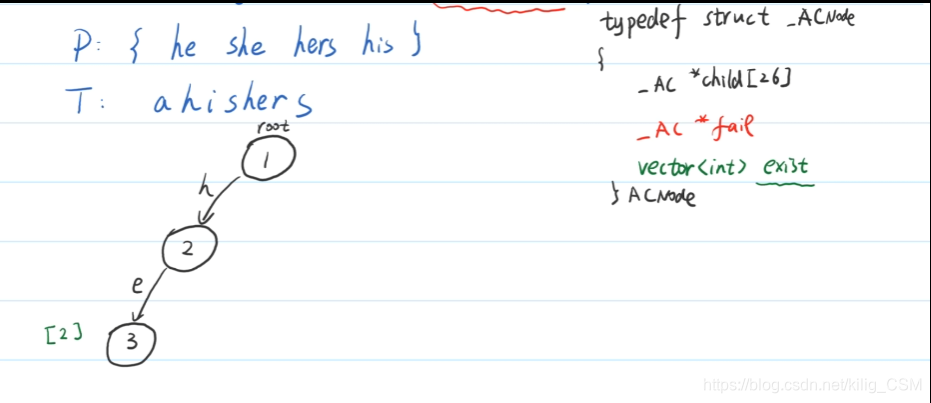 P: { he she hers his }
T: ahishers
root
1
h
2
e
[2]
3
typedef struct _ACNode
{
_AC *child[26]
_AC *fail
vector<int> exist
} ACNode
https://blog.csdn.net/kilig_CSM